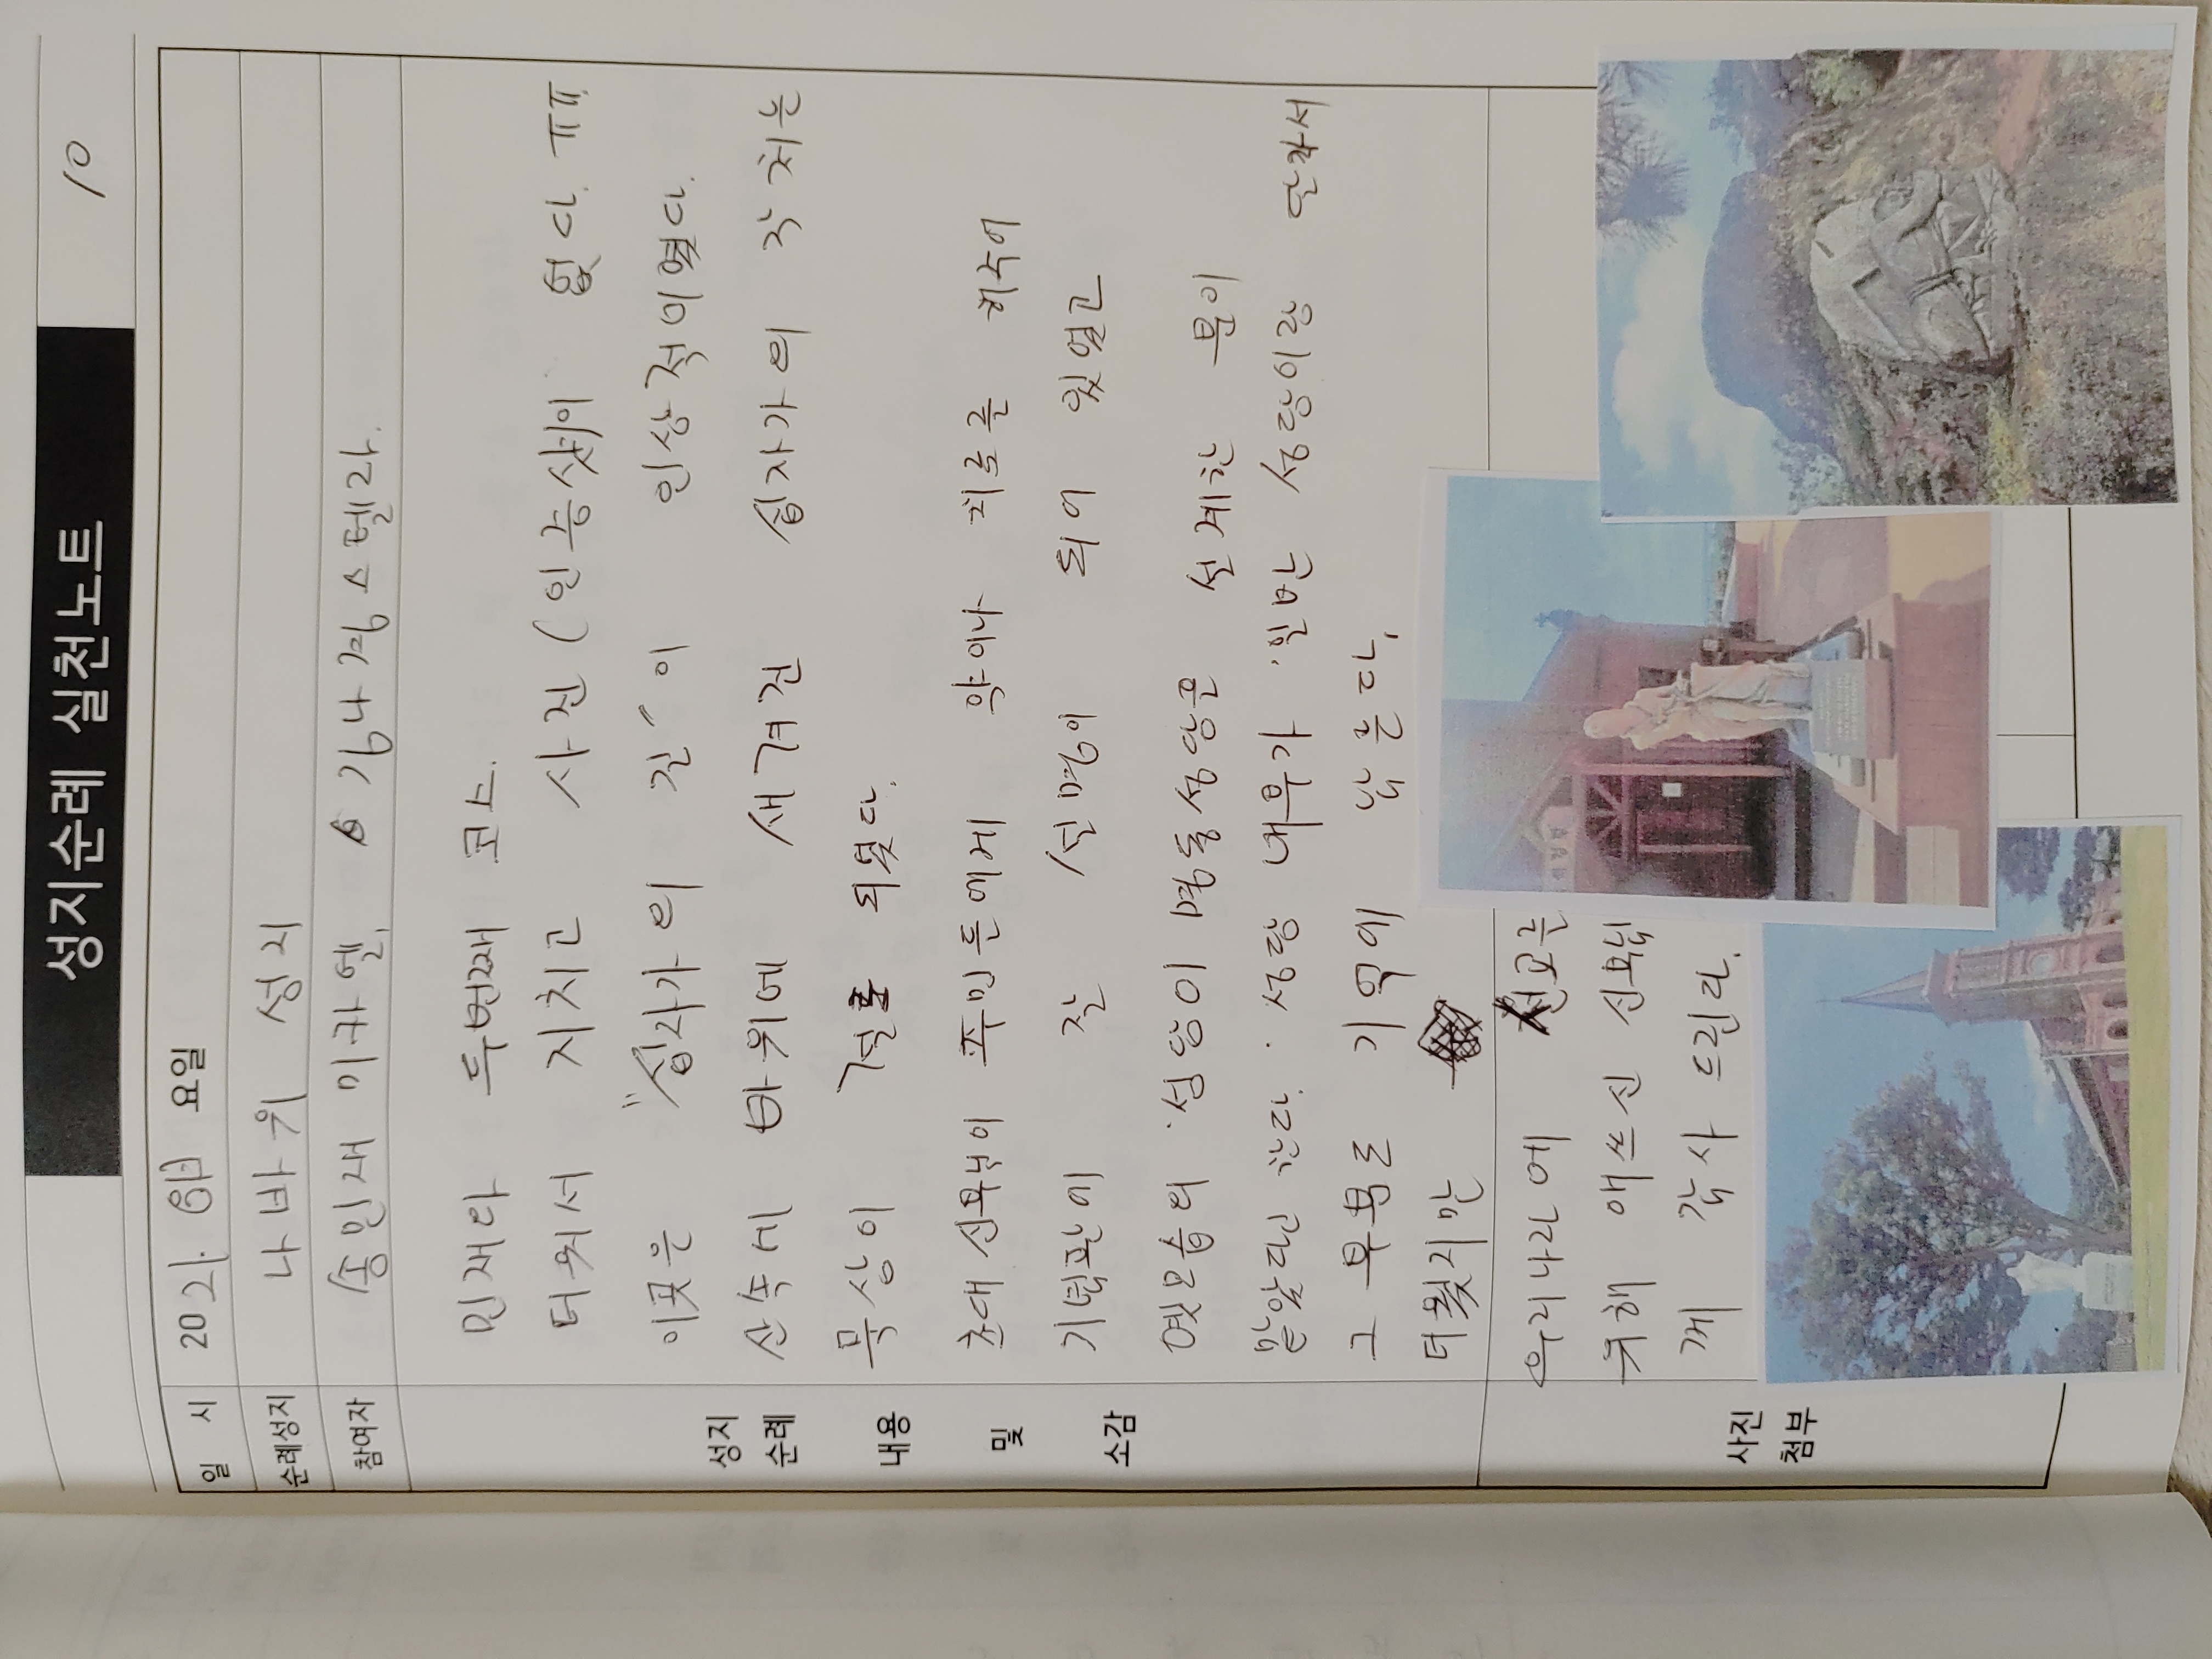 성지순례 실천노트
10
일 시 2021. 요일
순례성지 나바위 성지
참여자 송민재 미카엘, 김나경스텔라.
민재랑 두번째 코스.
더워서 지치고 사진(인증샷)이 없다. ㅠㅠ
이곳은 "십자가의 길"이 인상적이였다.
산속에 바위에 새겨진 십자가의 각 처는
묵상이 절로 되었다.
초대 신부님이 주민들에게 약이나 치료를 해주어
기념관에 잘 설명이 되어 있었고
옛모습의 성당이 명동성당을 설계한 분이
맡았다고 한다. 성당 내부가 일반 성당이랑 달라서
그 부분도 기억에 남는다.
더웠지만
우리나라에 선교를
위해 애쓰신 신부님
께 감사 드린다.
성지
순례
내용
및
소감
사진
첨부